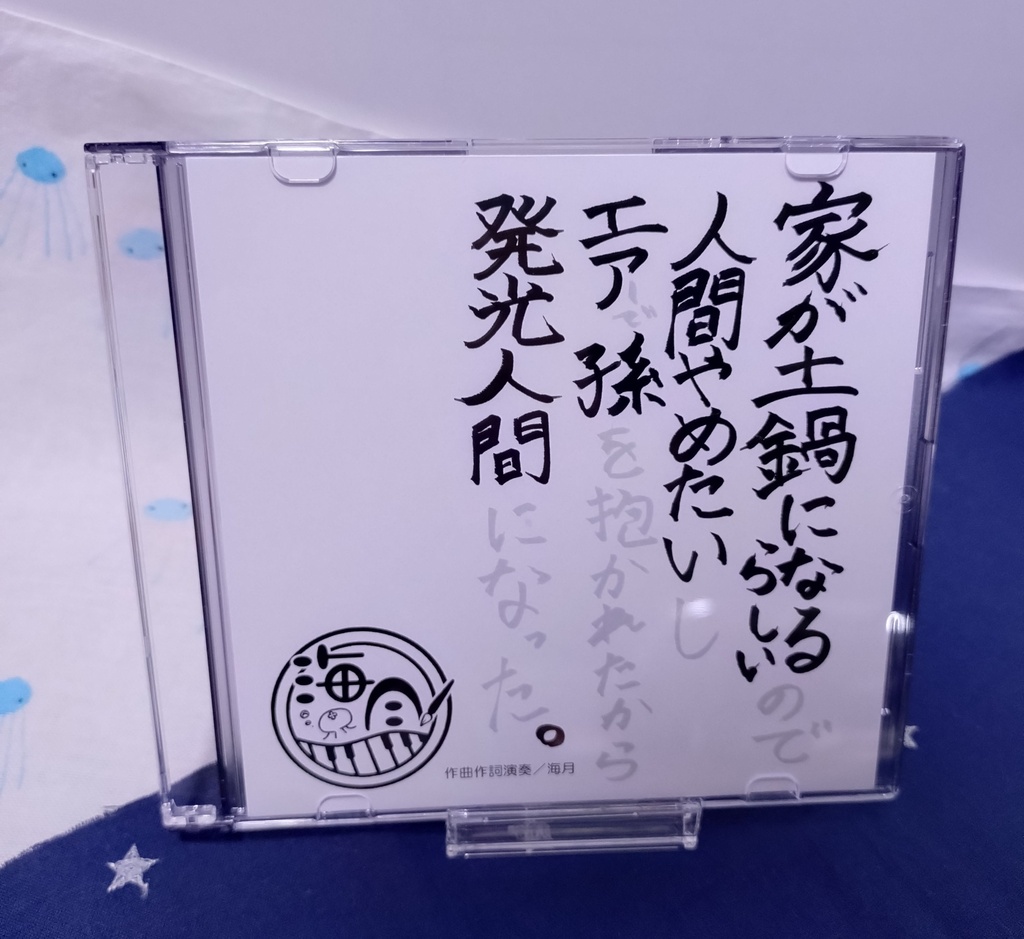 家が土鍋になるらしいので
人間やめたいし
エアーで孫を抱かれたから
発光人間になった。
海月
作曲作詞演奏／海月